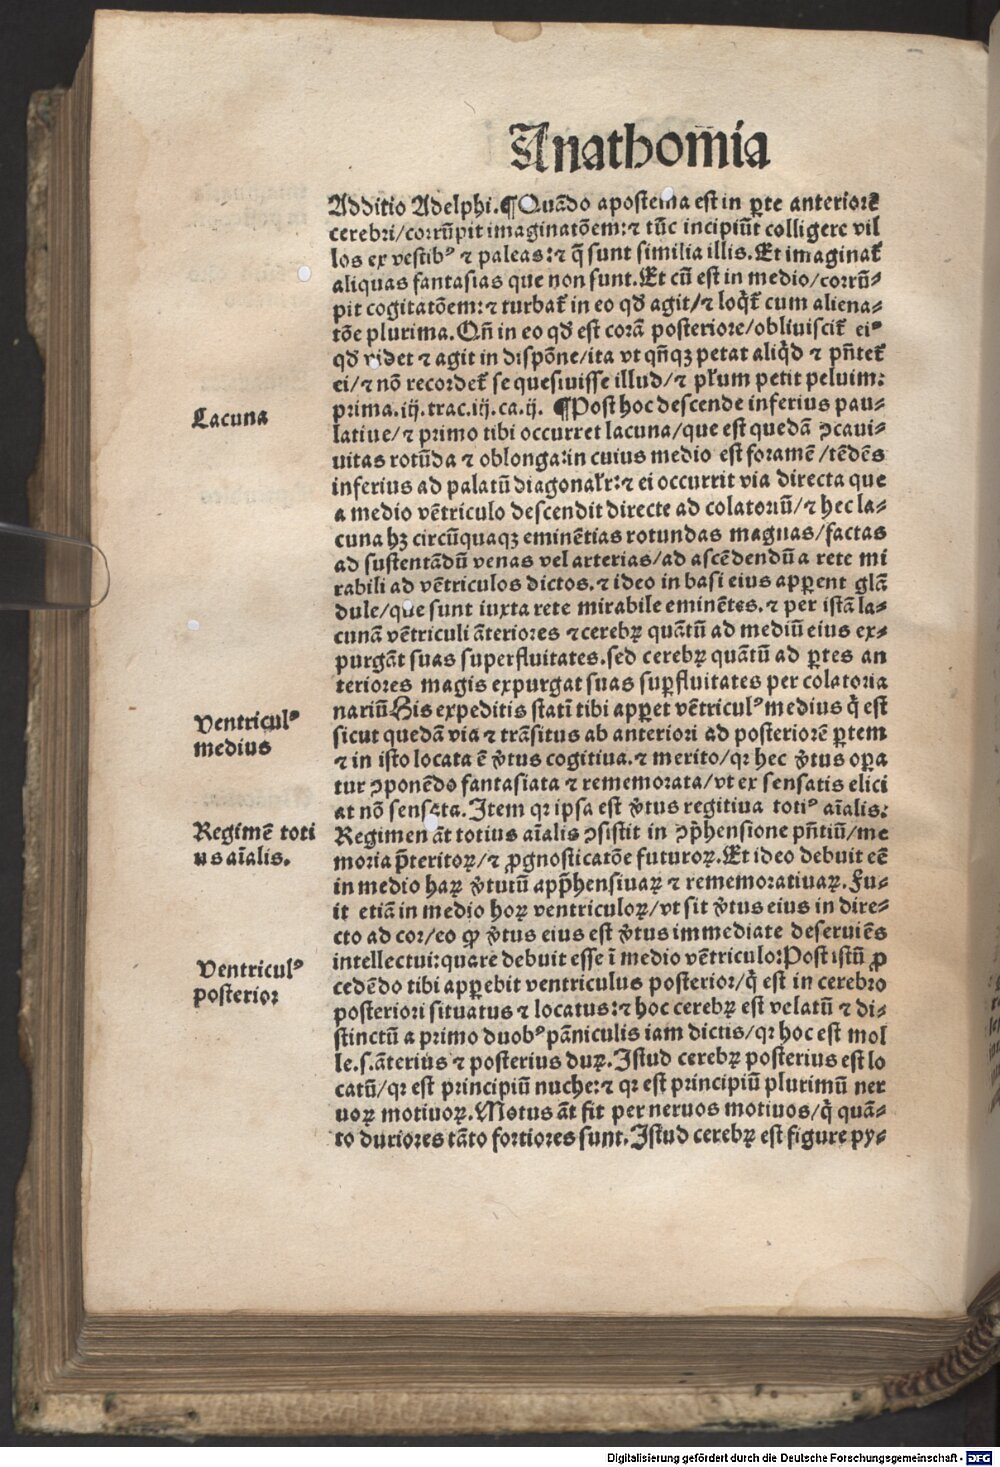 Anathom̄ia
Additio Adelphi.¶Quādo apostema est in ꝑte anteriorē
cerebri/corrūpit imaginatōem:⁊ tūc incipiūt colligere vil
los ex vestibꝰ ⁊ paleas:⁊ q̄ sunt similia illis.Et imaginat᷑
aliquas fantasias que non sunt.Et cū est in medio/corrū⸗
pit cogitatōem:⁊ turbat᷑ in eo qđ agit/⁊ loq̇t᷑ cum aliena⸗
tōe plurima.Qn̄ in eo qđ est corā posteriore/obliuiscit᷑ eiꝰ
qđ videt ⁊ agit in dispōne/ita vt qn̄qꝫ petat aliq̇d ⁊ pn̄tet᷑
ei/⁊ nō recordet᷑ se quesiuisse illud/⁊ płum petit peluim:
prima.iij.trac.iij.ca.ij. ¶Post hoc descende inferius pau⸗
latiue/⁊ primo tibi occurret lacuna/que est quedā ↄcaui⸗
uitas rotūda ⁊ oblonga:in cuius medio est foramē/tēdēs
inferius ad palatū diagonałr:⁊ ei occurrit via directa que
a medio vētriculo descendit directe ad colatoriū/⁊ hec la⸗
cuna hꝫ circūquaqꝫ eminētias rotundas magnas/factas
ad sustentādū venas vel arterias/ad ascēdendū a rete mi
rabili ad vētriculos dictos.⁊ ideo in basi eius apꝑent glā
dule/que sunt iuxta rete mirabile eminētes.⁊ per istā la⸗
cunā vētriculi āteriores ⁊ cerebꝝ quātū ad mediū eius ex⸗
purgāt suas superfluitates.sed cerebꝝ quātū ad ꝑtes an
teriores magis expurgat suas suꝑfluitates per colatoria
nariū.His expeditis statī tibi apꝑet vētriculꝰ medius q̇ est
sicut quedā via ⁊ trāsitus ab anteriori ad posteriorē ꝑtem
⁊ in isto locata ē v̓tus cogitiua.⁊ merito/qꝛ hec v̓tus oꝑa
tur ↄponēdo fantasiata ⁊ rememorata/vt ex sensatis elici
at nō sensata.Item qꝛ ipsa est v̓tus regitiua totiꝰ aīalis:
Regimen āt totius aīalis ↄsistit in ↄp̄hensione pn̄tiū/me
moria p̄teritoꝝ/⁊ ꝓgnosticatōe futuroꝝ.Et ideo debuit eē
in medio haꝝ v̓tutū app̄hensiuaꝝ ⁊ rememoratiuaꝝ.Fu⸗
it etiā in medio hoꝝ ventriculoꝝ/vt sit v̓tus eius in dire⸗
cto ad cor/eo ꝙ v̓tus eius est v̓tus immediate deseruiēs
intellectui:quare debuit esse ī medio vētriculo:Post istū ꝓ
cedēdo tibi apꝑebit ventriculus posterior/q̇ est in cerebro
posteriori situatus ⁊ locatus:⁊ hoc cerebꝝ est velatū ⁊ di⸗
stinctū a primo duobꝰ pāniculis iam dictis/qꝛ hoc est mol
le.s.āterius ⁊ posterius duꝝ.Istud cerebꝝ posterius est lo
catū/qꝛ est principiū nuche:⁊ qꝛ est principiū plurimū ner
uoꝝ motiuoꝝ.Motus āt fit per neruos motiuos/q̇ quā⸗
to duriores tāto fortiores sunt.Istud cerebꝝ est figure py⸗
Lacuna
Ventriculꝰ
medius
Regimē toti
us aīalis.
Ventriculꝰ
posterior
Digitalisierung gefördert durch die Deutsche Forschungsgemeinschaft - DFG